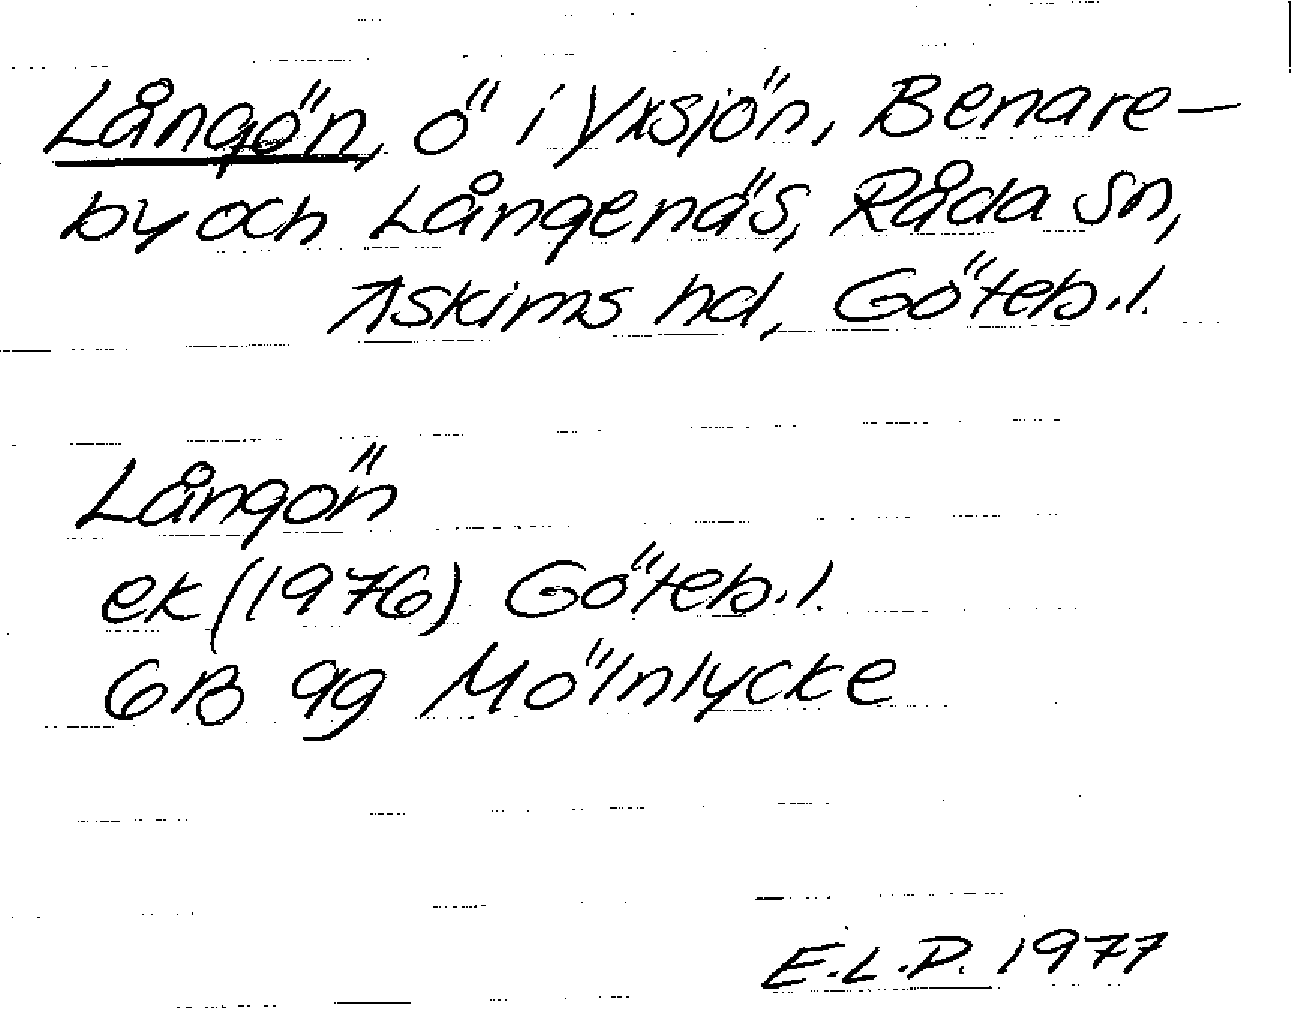 Långön, ö i Yxsjön, Benare-
by och Långenäs, Råda sn,
Askims hd, Göteb.l.
Långön
ek (1976) Göteb.l.
6B 9g Mölnlycke
E.L.P. 1977